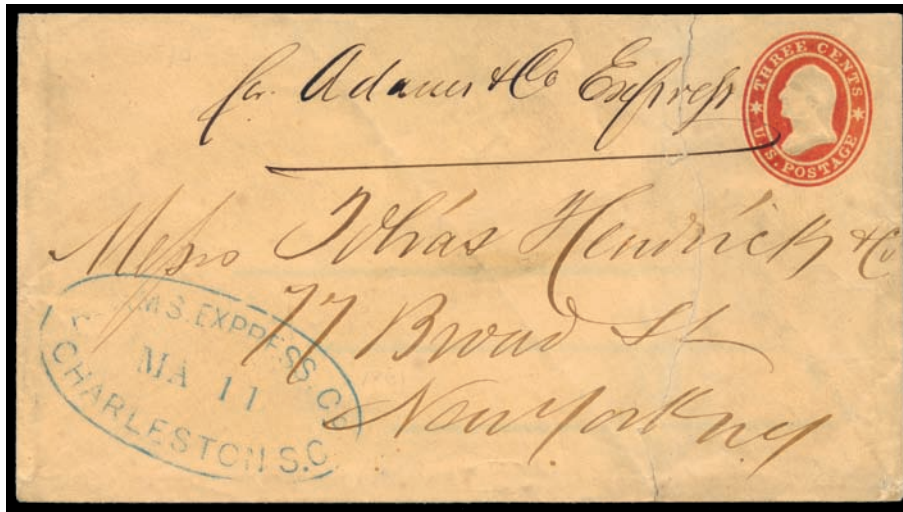 per. Adams & Co Express
THREE CENTS
U.S. POSTAGE
Messrs Tobias Hendrick & Co
77 Broad St
New York ny
ADAMS. EXPRESS. Co
MA 11
CHARLESTON S.C